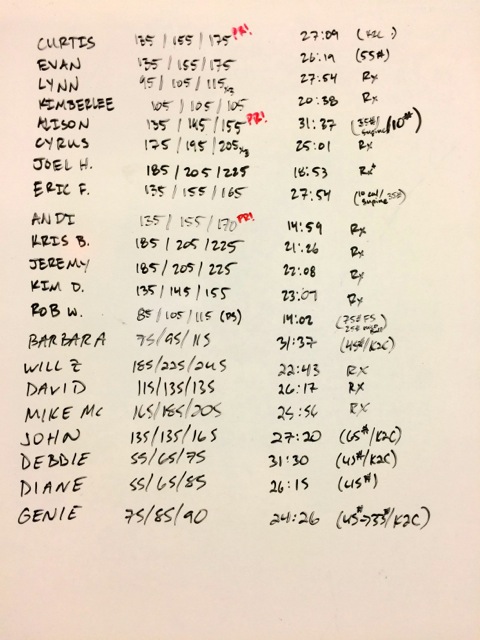 CURTIS 135 / 155 / 175 PR! 27:09 (K2C)
EVAN 135 / 155 / 175 26:19 (55#)
LYNN 95 / 105 / 115 x3 27:54 Rx
KIMBERLEE 105 / 105 / 105 20:38 Rx
ALISON 135 / 145 / 155 PR! 31:37 (35#/supine/10#)
CYRUS 175 / 195 / 205 x3 25:01 Rx
JOEL H. 185 / 205 / 225 18:53 Rx+
ERIC F. 135 / 155 / 165 27:54 (10 cal/supine/35#)
ANDI 135 / 155 / 170 PR! 14:59 Rx
KRIS B. 185 / 205 / 225 21:26 Rx
JEREMY 185 / 205 / 225 22:08 Rx
KIM D. 135 / 145 / 155 23:07 Rx
ROB W. 85 / 105 / 115 (PS) 19:02 (75# FS
BARBARA 75/95/115 31:37 (45#/K2C)
WILL Z 185/225/245 22:43 RX
DAVID 115/135/135 26:17 RX
MIKE MC 165/185/205 25:56 RX
JOHN 135/135/165 27:20 (65#/K2C)
DEBBIE 55/65/75 31:30 (45#/K2C)
DIANE 55/65/85 26:15 (45#)
GENIE 75/85/90 24:26 (45#→35#/K2C)